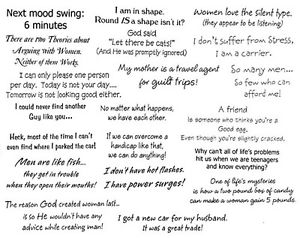 Next mood swing:
6 minutes
There are two Theories about
Arguing with Women.
Neither of them Works.
I can only please one person
per day. Today is not your day...
Tomorrow is not looking good either.
I could never find another
Guy like you...
Heck, most of the time I can't
even find where I parked the car!
Men are like fish...
they get in trouble
when they open their mouths!
The reason God created woman last...
is so He wouldn't have any
advice while creating man!
I am in shape.
Round IS a shape isn't it?
God said
"Let there be cats!"
(And He was promptly ignored)
My mother is a travel agent
for guilt trips!
No matter what happens,
we have each other.
If we can overcome a
handicap like that,
we can do anything!
I don't have hot flashes.
I have power surges!
I got a new car for my husband.
It was a great trade!
Women love the silent type.
(they appear to be listening)
I don't suffer from Stress,
I am a carrier.
So many men...
So few who can
afford me!
A friend
is someone who thinks you're a
Good egg,
Even though you're slightly cracked.
Why can't all of life's problems
hit us when we are teenagers
and know everything?
One of life's mysteries
is how a two pound box of candy
can make a woman gain 5 pounds.